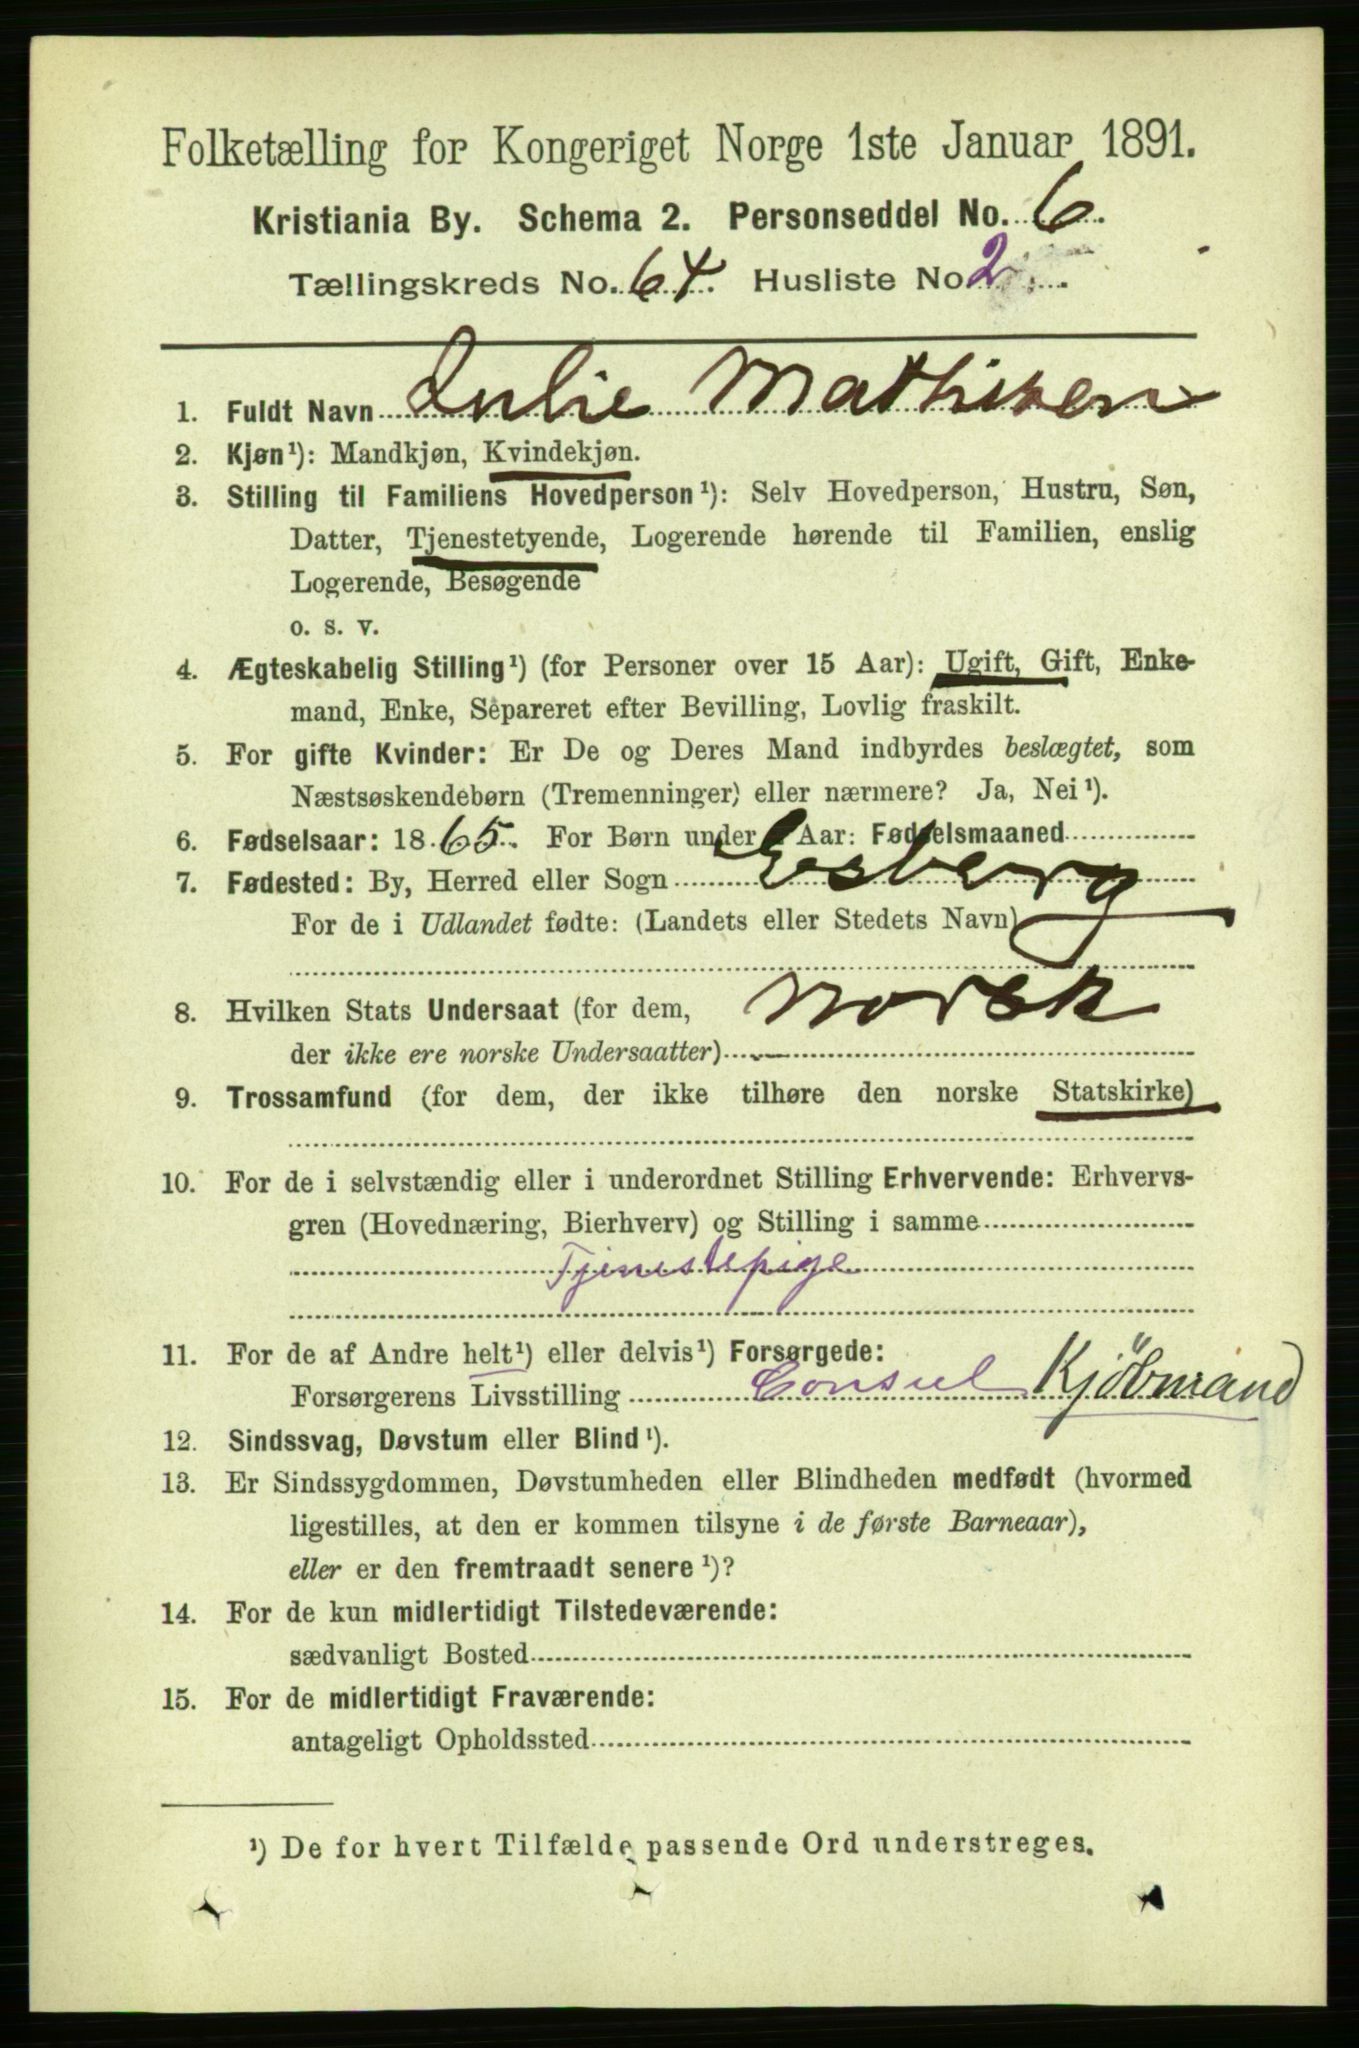 Folketælling for Kongeriget Norge 1ste Januar 1891.
Kristiania By. Schema 2. Personseddel No. 6.
Tællingskreds No. 64. Husliste No 2
1. Fuldt Navn Julie Mathisen
2. Kjøn¹): Mandkjøn, Kvindekjøn.
3. Stilling til Familiens Hovedperson¹): Selv Hovedperson, Hustru, Søn,
Datter, Tjenestetyende, Logerende hørende til Familien, enslig
Logerende, Besøgende
o. s. v.
4. Ægteskabelig Stilling¹) (for Personer over 15 Aar): Ugift, Gift, Enke-
mand, Enke, Separeret efter Bevilling, Lovlig fraskilt.
5. For gifte Kvinder: Er De og Deres Mand indbyrdes beslægtet, som
Næstsøskendebørn (Tremenninger) eller nærmere? Ja, Nei¹).
6. Fødselsaar: 1865. For Børn under Aar: Fødselsmaaned
7. Fødested: By, Herred eller Sogn Eesberg
For de i Udlandet fødte: (Landets eller Stedets Navn)
8. Hvilken Stats Undersaat (for dem, norsk
der ikke ere norske Undersaatter)
9. Trossamfund (for dem, der ikke tilhøre den norske Statskirke)
10. For de i selvstændig eller i underordnet Stilling Erhvervende: Erhvervs-
gren (Hovednæring, Bierhverv) og Stilling i samme
Tjenestepige
11. For de af Andre helt¹) eller delvis¹) Forsørgede:
Forsørgerens Livsstilling Consul Kjöbmand
12. Sindssvag, Døvstum eller Blind¹).
13. Er Sindssygdommen, Døvstumheden eller Blindheden medfødt (hvormed
ligestilles, at den er kommen tilsyne i de første Barneaar),
eller er den fremtraadt senere¹)?
14. For de kun midlertidigt Tilstedeværende:
sædvanligt Bosted
15. For de midlertidigt Fraværende:
antageligt Opholdssted
¹) De for hvert Tilfælde passende Ord understreges.